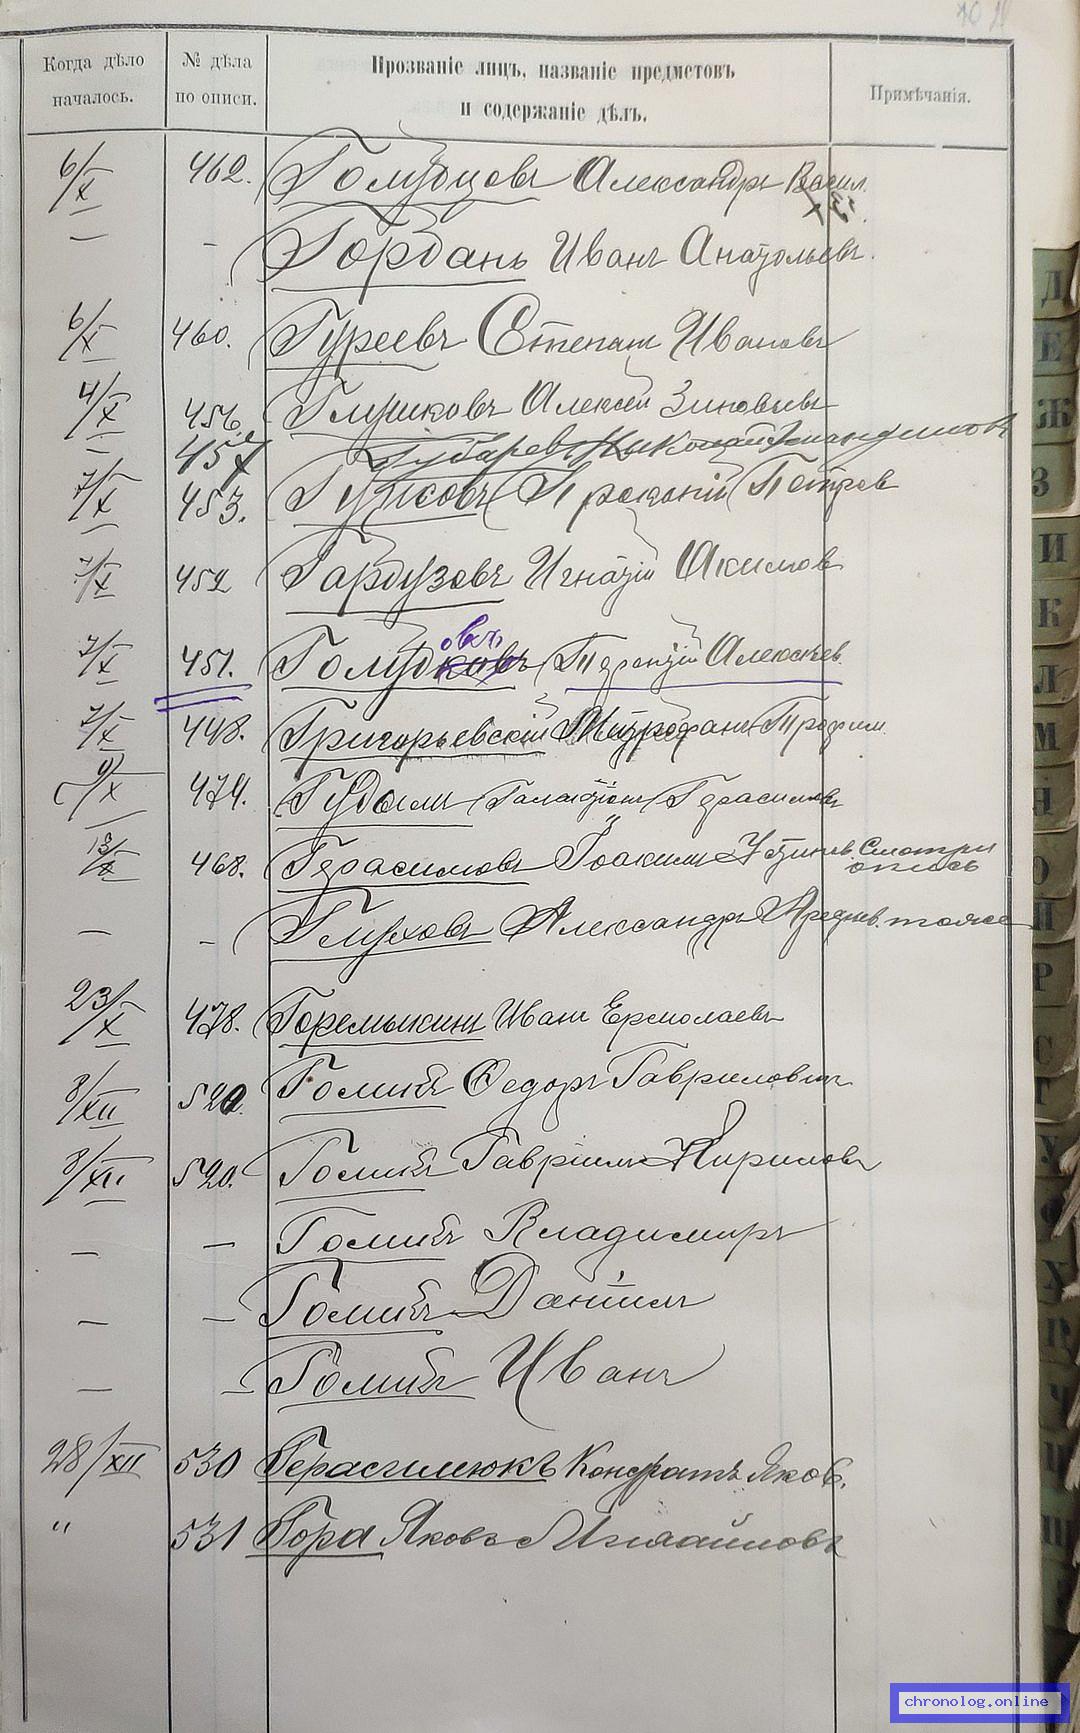 Когда дѣло началось.
№ дѣла по описи.
Прозваніе лицъ, названіе предметовъ и содержаніе дѣлъ.
Примѣчанія.
6/X 462. Голубцовъ Александръ Васил.
— — Горбань Иванъ Анатольевъ.
6/X 460. Гуреевъ Степанъ Ивановъ
4/X 456. Глушковъ Алексѣй Зиновьевъ
457 Губаревъ
7/X 453. Гусовъ Прокопій Петров
7/X 452 Гарбузовъ Игнатій Акимов
7/X 451. Голубковъ овъ Терентій Алексѣев.
7/X 448. Григорьевскій Митрофанъ Трофим.
9/X 474. Гудымъ Галактіонъ Герасимовъ
13/X 468. Герасимовъ Іоакимъ Устинов. Смотри опись
— — Глуховъ Александръ тоже
23/X 478. Горемыкинъ Иванъ Ермолаевъ
8/XII 520. Голикъ Федоръ Гавриловичъ
8/XII 520. Голикъ Гавріилъ Кириловъ
— — Голикъ Владимиръ
— — Голикъ Даніилъ
— — Голикъ Иванъ
28/XII 530 Герасимюкъ Кондратъ Яков.
" 531 Гора Яковъ Измайловъ
Д
Е
Ж
З
И
К
Л
М
Н
О
П
Р
С
Т
У
Ф
Х
Ц
Ч
Ш
chronolog.online